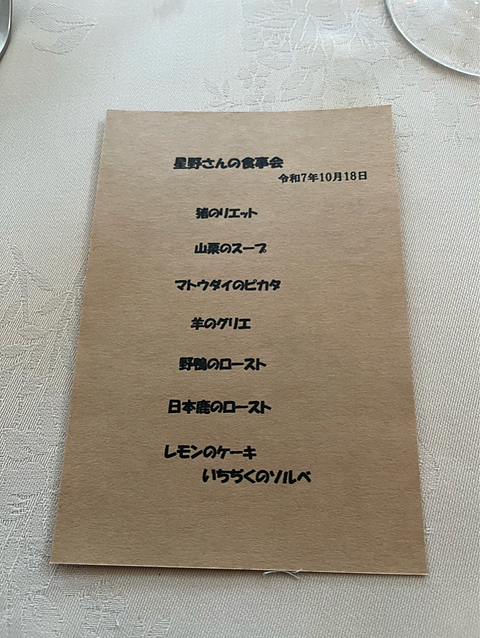 星野さんの食事会
令和7年10月18日
猪のリエット
山栗のスープ
マトウダイのピカタ
羊のグリエ
野鴨のロースト
日本鹿のロースト
レモンのケーキ
いちぢくのソルベ